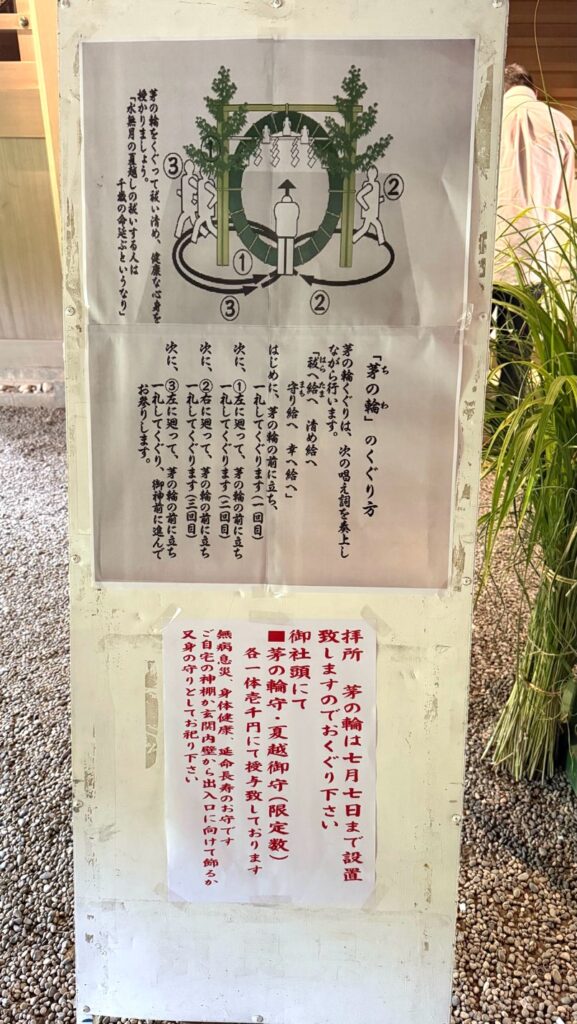 茅の輪をくぐって祓い清め、健康な心身を
授かりましょう。
「水無月の夏越しの祓いする人は
千歳の命延ぶというなり」
③
②
①
③
②
「茅の輪」のくぐり方
ち
わ
茅の輪くぐりは、次の唱え詞を奏上し
ながら行います。
「祓へ給へ 清め給へ
はら
たま
守り給へ 幸へ給へ」
まも
はじめに、茅の輪の前に立ち、
一礼してくぐります(一回目)
次に、①左に廻って、茅の輪の前に立ち
一礼してくぐります(二回目)
次に、②右に廻って、茅の輪の前に立ち
一礼してくぐります(三回目)
次に、③左に廻って、茅の輪の前に立ち
一礼してくぐり、御神前に進んで
お参りします。
拝所 茅の輪は七月七日まで設置
致しますのでおくぐり下さい
御社頭にて
■茅の輪守・夏越御守(限定数)
各一体壱千円にて授与致しております
無病息災、身体健康、延命長寿のお守です
ご自宅の神棚か玄関内壁から出入口に向けて飾るか
又身の守りとしてお祀り下さい